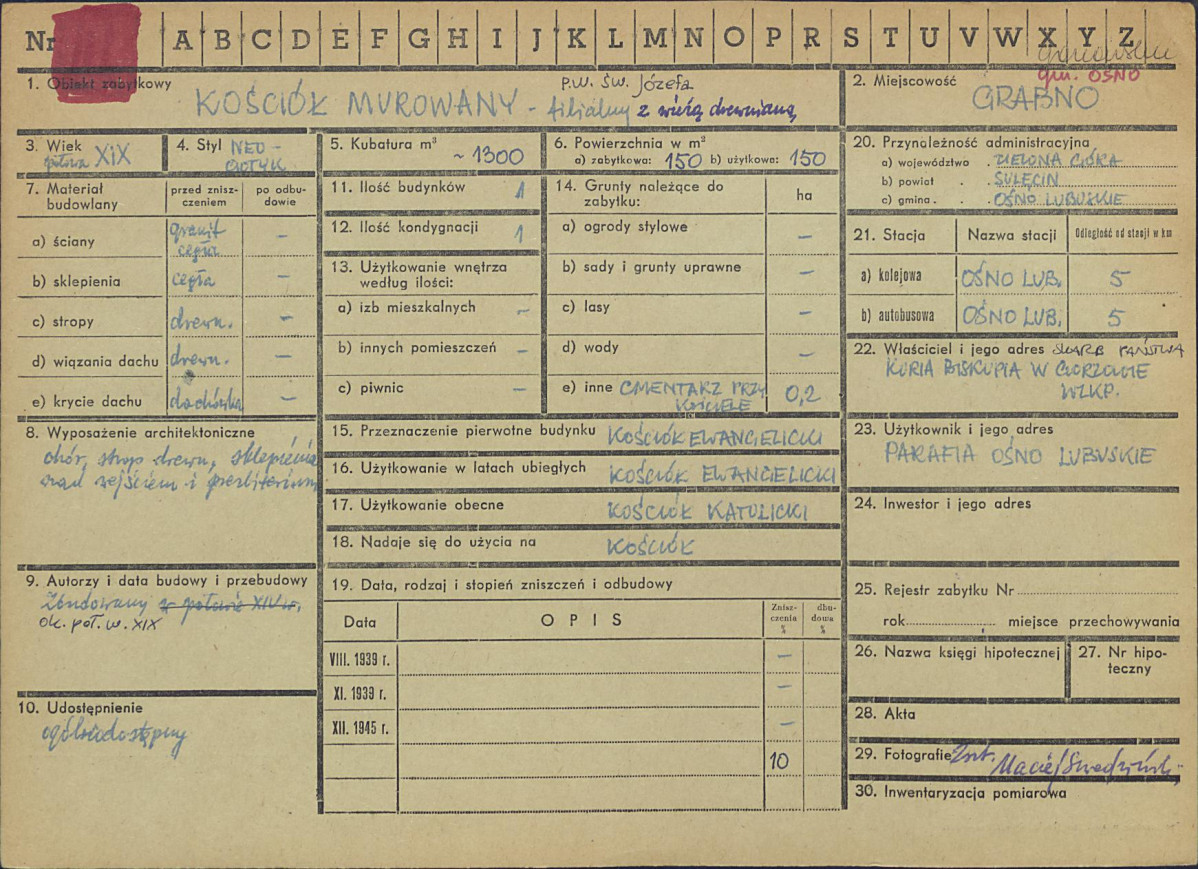 Nr A B C D E F G H I J K L M N O P R S T U V W X Y Z
gm. OŚNO
1. Obiekt zabytkowy
p.w. św. Józefa
KOŚCIÓŁ MUROWANY - filialny z wieżą drewnianą
2. Miejscowość
GRABNO
3. Wiek
połowa XIX
4. Styl NEO-
GOTYK
5. Kubatura m³
~ 1300
6. Powierzchnia w m²
a) zabytkowa: 150 b) użytkowa: 150
7. Materiał budowlany
przed znisz-
czeniem
po odbu-
dowie
a) ściany granit –
cegła
b) sklepienia cegła –
c) stropy drewn. –
d) wiązania dachu drewn. –
e) krycie dachu dachówka –
8. Wyposażenie architektoniczne
chór, strop drewn, sklepienia
nad wejściem i prezbiterium
9. Autorzy i data budowy i przebudowy
Zbudowany w połowie XIV w.
ok. poł. w. XIX
10. Udostępnienie
ogólnodostępny
11. Ilość budynków 1
12. Ilość kondygnacji 1
13. Użytkowanie wnętrza
według ilości:
a) izb mieszkalnych –
b) innych pomieszczeń –
c) piwnic –
14. Grunty należące do
zabytku:
ha
a) ogrody stylowe –
b) sady i grunty uprawne –
c) lasy –
d) wody –
e) inne CMENTARZ PRZY
KOŚCIELE 0,2
15. Przeznaczenie pierwotne budynku KOŚCIÓŁ EWANGIELICKI
16. Użytkowanie w latach ubiegłych KOŚCIÓŁ EWANGIELICKI
17. Użytkowanie obecne KOŚCIÓŁ KATOLICKI
18. Nadaje się do użycia na KOŚCIÓŁ
19. Data, rodzaj i stopień zniszczeń i odbudowy
Data OPIS Znisz-
czenia
%
dbu-
dowa
%
VIII. 1939 r. –
XI. 1939 r. –
XII. 1945 r. –
10
20. Przynależność administracyjna
a) województwo . ZIELONA GÓRA
b) powiat . . SULĘCIN
c) gmina . . OŚNO LUBUSKIE
21. Stacja Nazwa stacji Odległość od stacji w km
a) kolejowa OŚNO LUB. 5
b) autobusowa OŚNO LUB. 5
22. Właściciel i jego adres SKARB PAŃSTWA
KURIA BISKUPIA W GORZOWIE
WLKP.
23. Użytkownik i jego adres
PARAFIA OŚNO LUBUSKIE
24. Inwestor i jego adres
25. Rejestr zabytku Nr
rok miejsce przechowywania
26. Nazwa księgi hipotecznej
27. Nr hipo-
teczny
28. Akta
29. Fotografie
Maciej
30. Inwentaryzacja pomiarowa